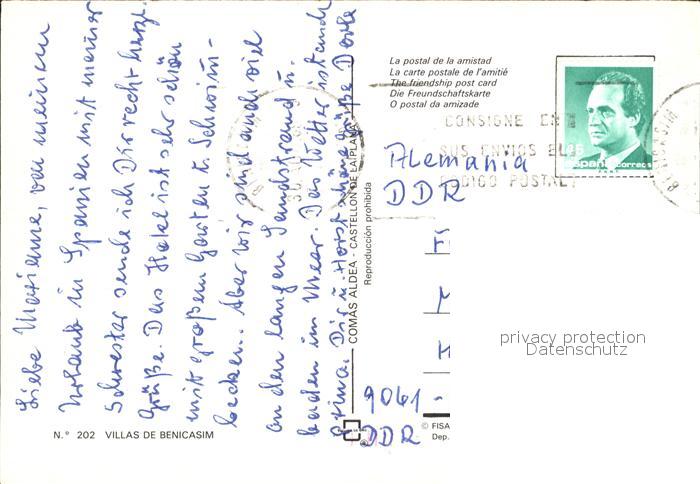 Liebe Marianne, von meinem
Urlaub in Spanien mit meiner
Schwester sende ich Dir recht herzl.
Grüße. Das Hotel ist sehr schön
mit großem Garten u. Schwimm-
becken. Aber wir sind auch viel
an den langen Sandstrand u.
baden im Meer. Das Wetter ist auch
prima. Dir u. Horst schöne Grüße Dorle
La postal de la amistad
La carte postale de l'amitié
The friendship post card
Die Freundschaftskarte
O postal da amizade
CONSIGNE EN
SUS ENVIOS EL
CODIGO POSTAL
España correos
BENICASIM
Alemania
DDR
9061 -
DDR
COMAS ALDEA - CASTELLON DE LA PLANA
Reproducción prohibida
© FISA
Dep.
N.° 202 VILLAS DE BENICASIM
privacy protection
Datenschutz